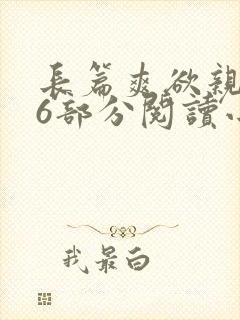 長篇爽欲親
6部分閱讀
我最白